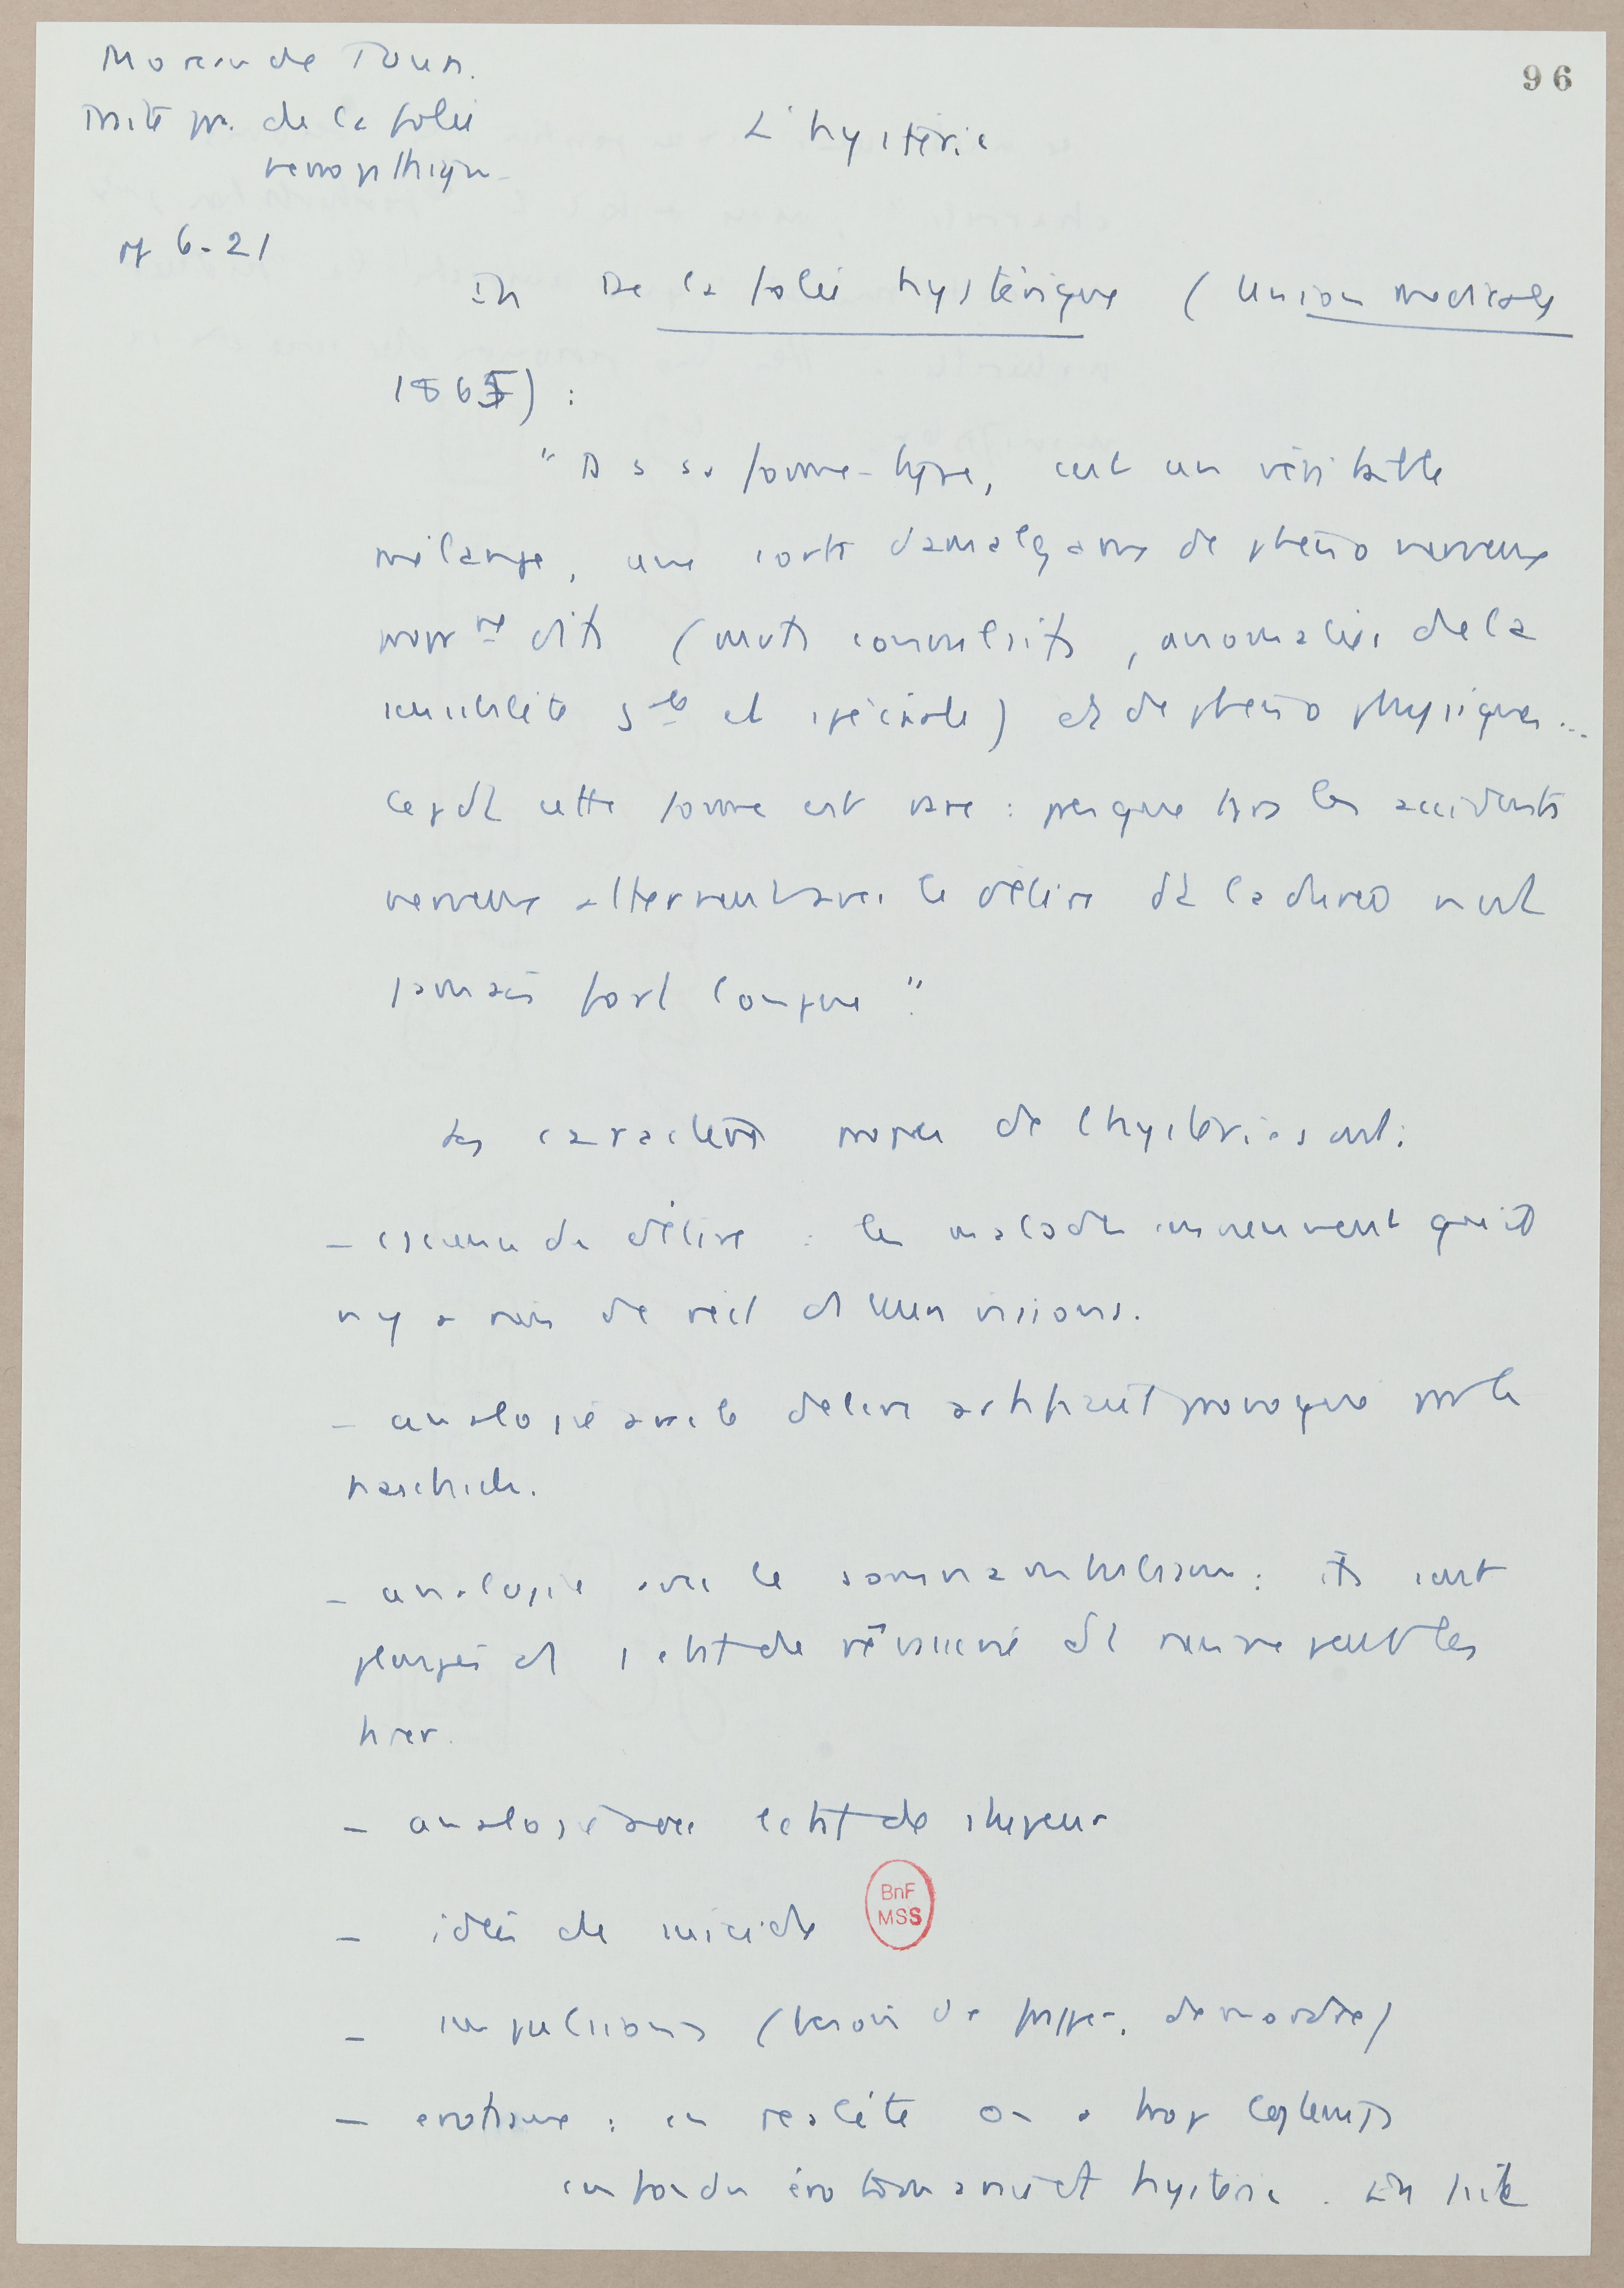 Moreau de Tours.
Traité pr. de la folie
névropathique
pp 6-21
96
L'hystérie
In De la folie hystérique (Union médicale
1865) :
"Ds sa forme-type, c'est un véritable
mélange, une sorte d'amalgame de phéno nerveux
propr nt dits (mvts convulsifs, anomalies de la
sensibilité gle et spéciale) et de phéno physiques...
Cepdt cette forme est rare : presque tjrs les accidents
nerveux alternent avec le délire dt la durée n'est
jamais fort longue".
Les caractères propres de l'hystérie sont :
- du délire : les malades qu'il
n'y a rien de réel ds leurs visions.
- analogie avec le délire artificielt provoqué par le
haschich.
- analogie avec le somnambulisme : ils sont
plongés ds 1 état de rêvasserie dt rien ne peut les
tirer.
- analogie avec l'état de stupeur
- idées de suicide
- impulsions (besoin de frapper, de mordre)
- érotisme : en réalité on a trop
confondu érotomanie et hystérie. En
BnF
MSS